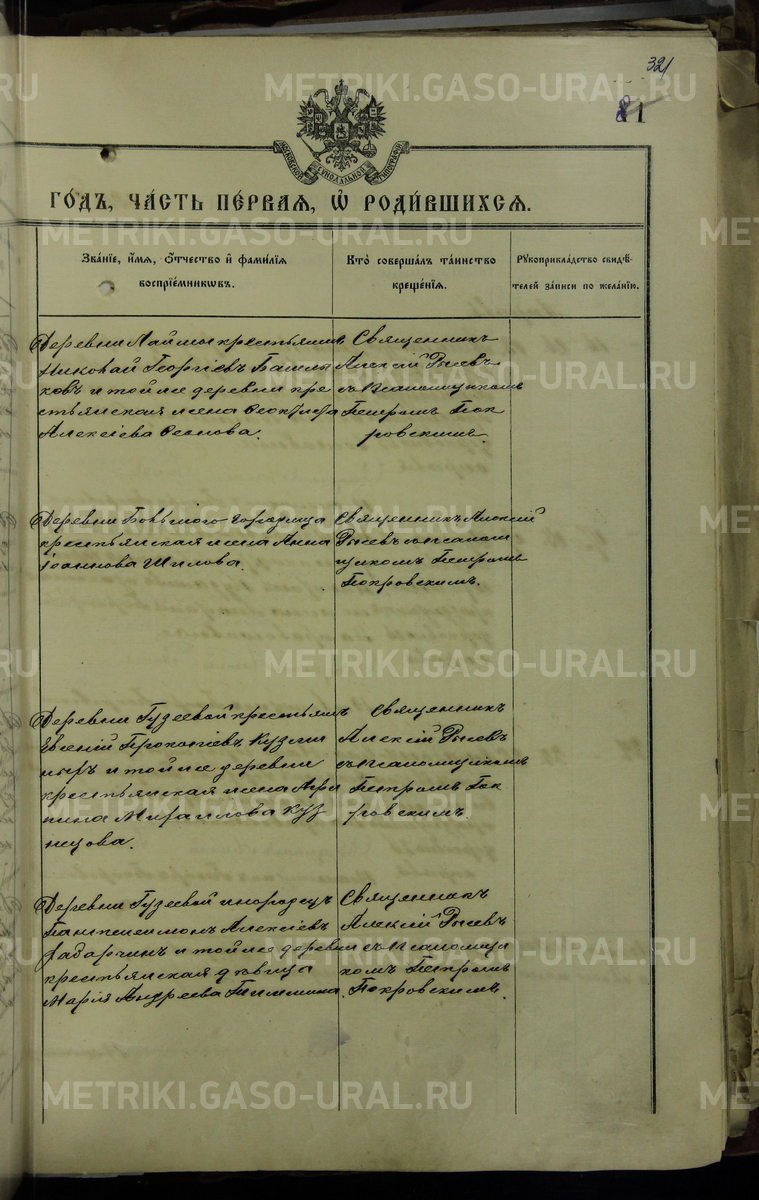 321
81
МОСКОВСКОЙ СѴНОДАЛЬНОЙ ТИПОГРАФІИ
ГО́ДЪ, ЧА́СТЬ ПЕ́РВАЯ, Ѡ҆ РОДИ́ВШИХСЯ.
Зва́нїе, и҆́мя, ѻ҆́тчество и҆ фами́лїя воспрїе́мникѡвъ.
Кто̀ соверша́лъ та́инство креще́нїя.
Рꙋкоприкла́дство свидѣ́телей за́писи по жела́нїю.
Деревни крестьянинъ
Николай Георгіевъ
ковъ и той же деревни кре
стьянская жена
Алексіева
Священникъ
Алексій
съ псаломщикомъ
Петромъ Пок
ровскимъ.
Деревни
крестьянская жена Анна
Іоаннова Шилова.
Священникъ Алексій
съ псалом
щикомъ Петромъ
Покровскимъ.
Деревни Гузеевой крестьянинъ
Евгеній Прокопіевъ Кузми
ныхъ и той же деревни
крестьянская жена Агри
пина Михаилова Куз
нецова.
Священникъ
Алексій
съ псаломщикомъ
Петромъ Пок
ровскимъ.
Деревни Гузеевой инородецъ
Пантелеимонъ Алексіевъ
и той же деревни
крестьянская дѣвица
Марія Андреева
Священникъ
Алексій
съ псаломщи
комъ Петромъ
Покровскимъ.
METRIKI.GASO-URAL.RU